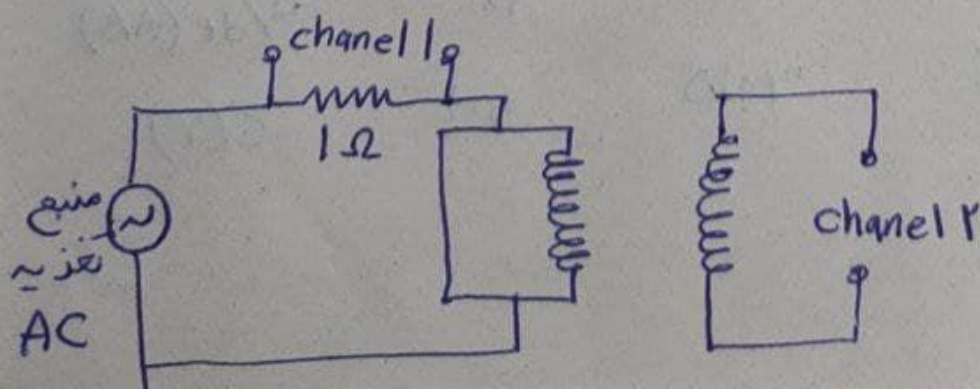 chanel 1
1 Ω
منبع
تغزیه
AC
chanel ۲